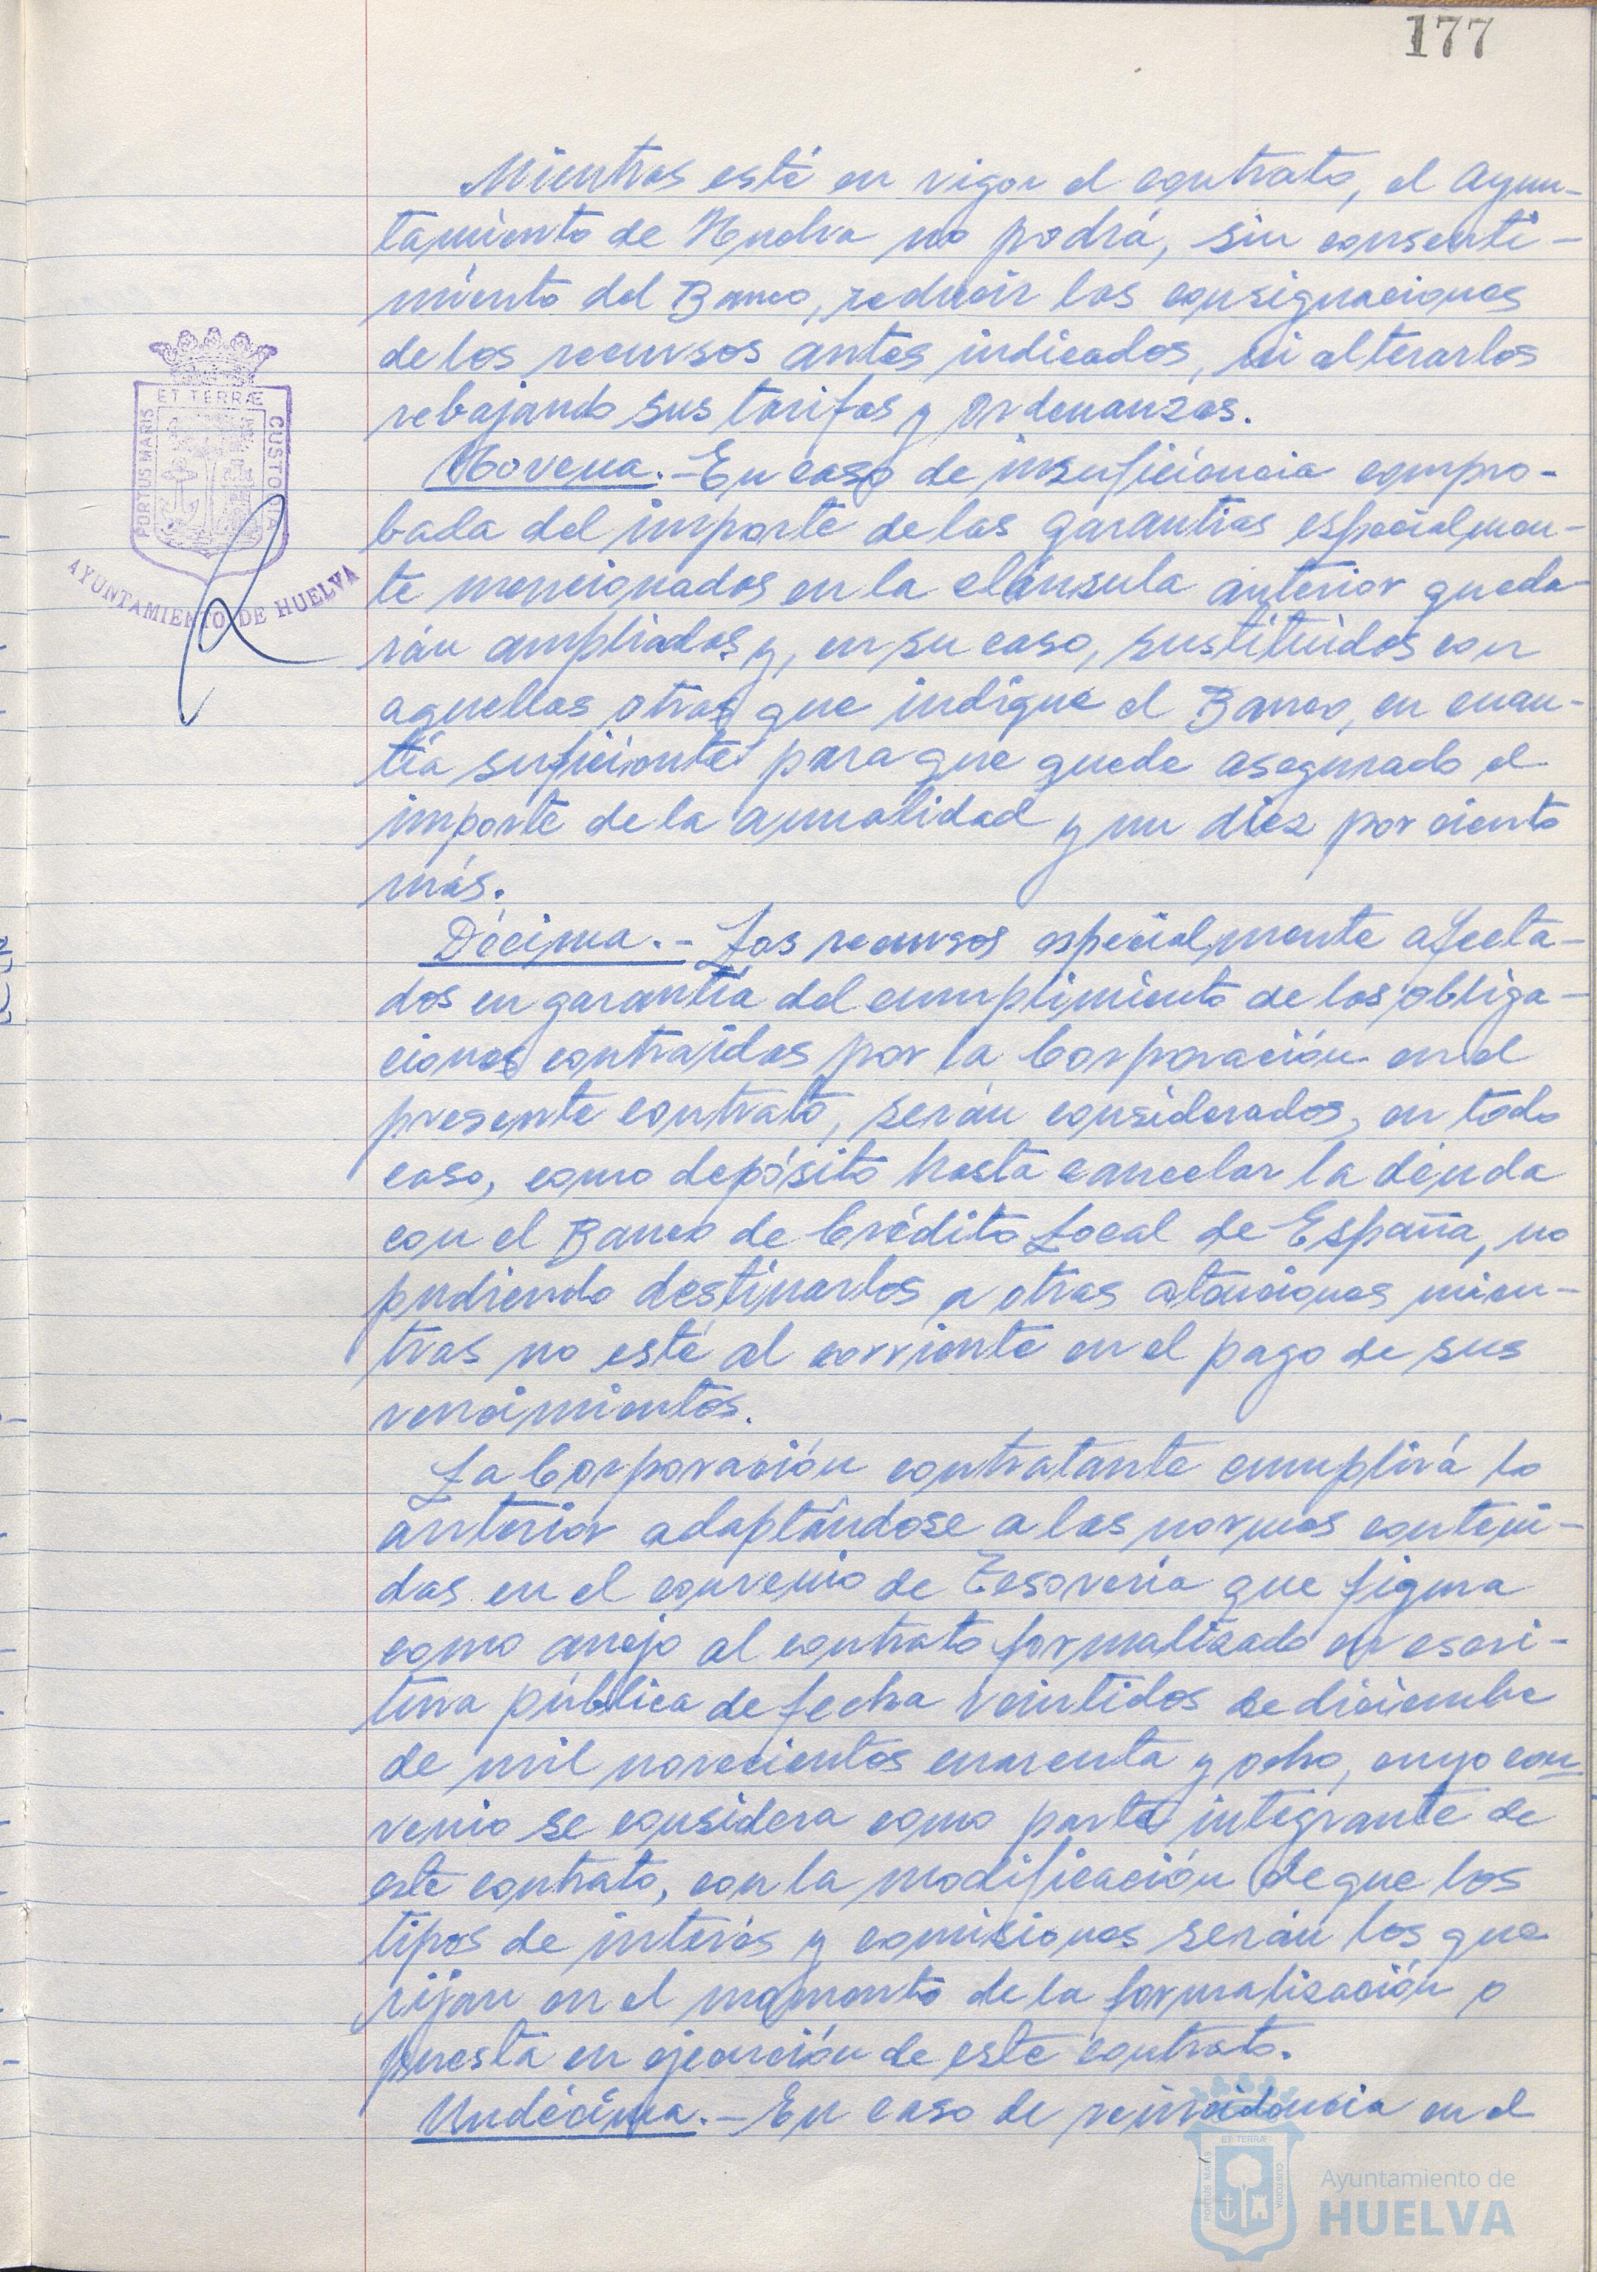 177
Mientras esté en vigor el contrato, el Ayun-
tamiento de Huelva no podrá, sin consenti-
miento del Banco, reducir las consignaciones
de los recursos antes indicados, ni alterarlos
rebajando sus tarifas y Ordenanzas.
Novena.- En caso de insuficiencia compro-
bada del importe de las garantias especialmen-
te mencionadas en la cláusula anterior queda-
rán ampliadas y, en su caso, sustituidas con
aquellas otras que indique el Banco, en cuan-
tía suficiente para que quede asegurado el
importe de la anualidad y un diez por ciento
más.
Décima.- Los recursos especialmente afecta-
dos en garantía del cumplimiento de las obliga-
ciones contraídas por la Corporación en el
presente contrato, serán considerados, en todo
caso, como depósito hasta cancelar la deuda
con el Banco de Crédito Local de España, no
pudiendo destinarlos a otras atenciones mien-
tras no esté al corriente en el pago de sus
vencimientos.
La Corporación contratante cumplirá lo
anterior adaptándose a las normas conteni-
das en el convenio de Tesorería que figura
como anejo al contrato formalizado en escri-
tura pública de fecha veintidos de diciembre
de mil novecientos cuarenta y ocho, cuyo con-
venio se considera como parte integrante de
este contrato, con la modificación de que los
tipos de interés y comisiones serán los que
rijan en el momento de la formalización o
puesta en ejecución de este contrato.
Undécima.- En caso de reincidencia en el
ET TERRÆ
PORTUS MARIS
CUSTODIA
AYUNTAMIENTO DE HUELVA
ET TERRÆ
PORTUS MARIS
CUSTODIA
Ayuntamiento de
HUELVA